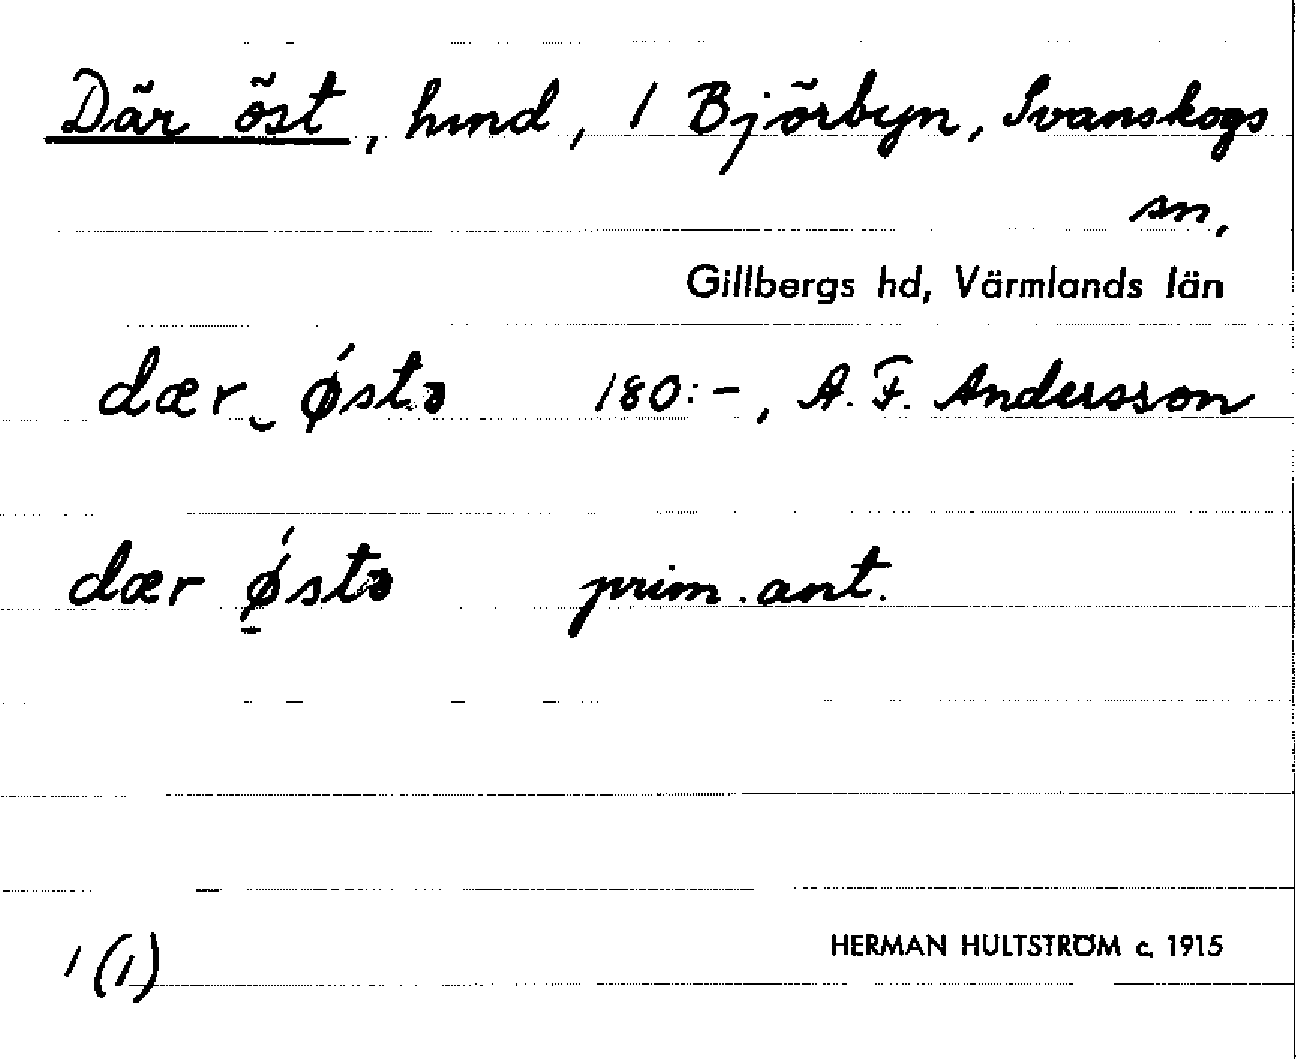 Där öst, hmd, 1 Björbyn, Svanskogs
sn,
Gillbergs hd, Värmlands län
dær‿ ǿstə 180:-, A. F. Andersson
dær ǿ̠stə prim. ant.
1 (1)
HERMAN HULTSTRÖM c. 1915